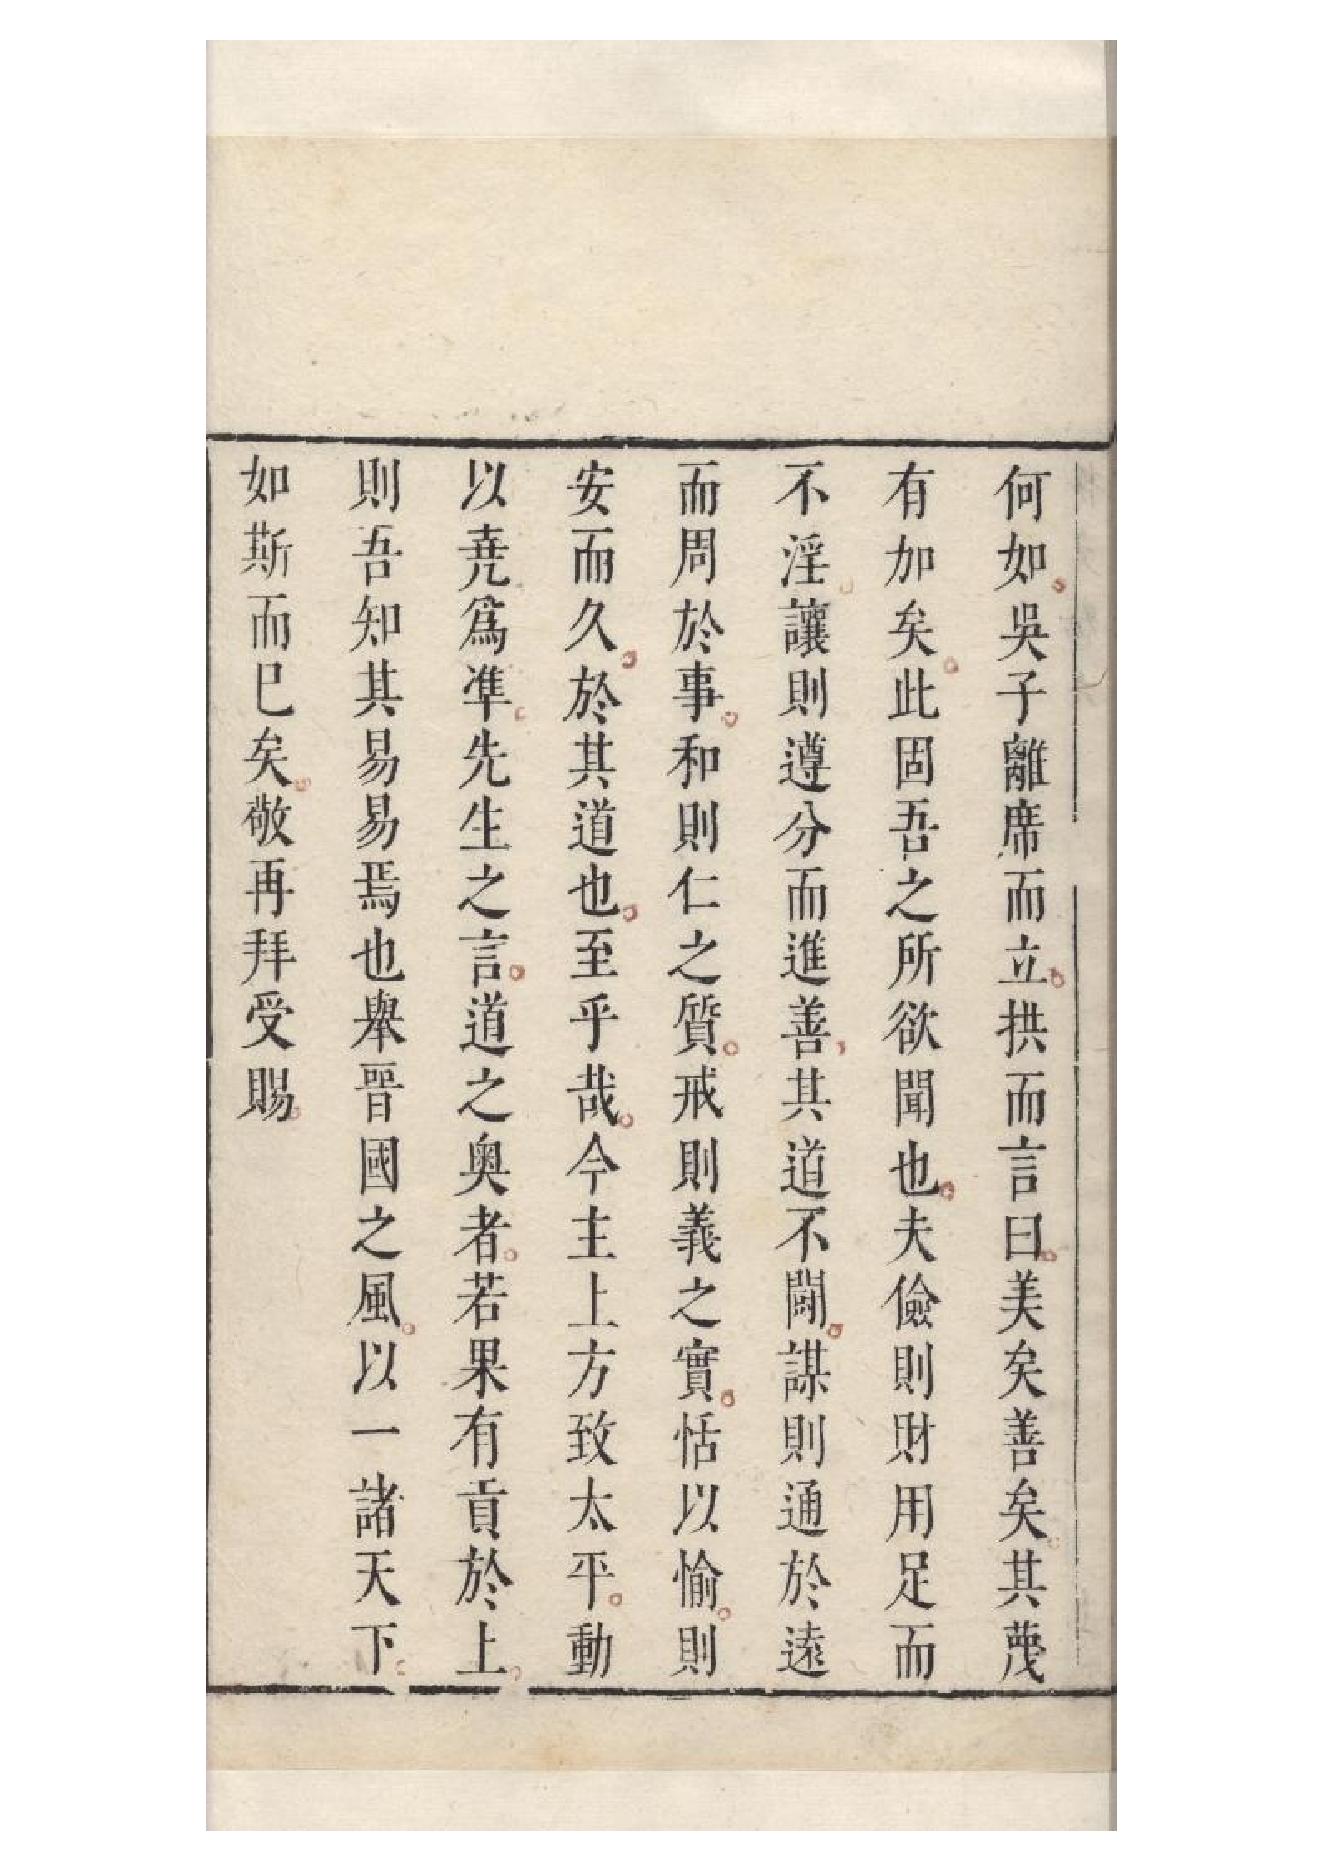 何如吳子離席而立拱而言曰美矣善矣其蔑
有加矣此固吾之所欲聞也夫儉則財用足而
不淫讓則遵分而進善其道不鬭謀則通於遠
而周於事和則仁之質戒則義之實恬以愉則
安而久於其道也至乎哉今主上方致太平動
以堯爲凖先生之言道之奧者若果有貢於上
則吾知其易易焉也舉晉國之風以一諸天下
如斯而已矣敬再拜受賜